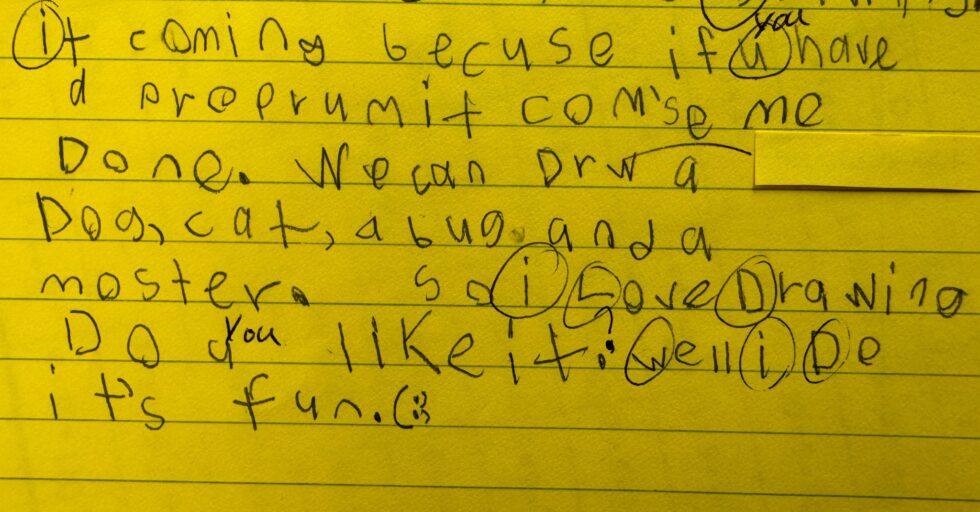 you
it coming becuse if u have
a proprumit com'se me
Done. We can Drw a
Dog, cat, a bug, and a
moster. so i Love Drawing
Do d you like it? Well i De
it's fun. (: